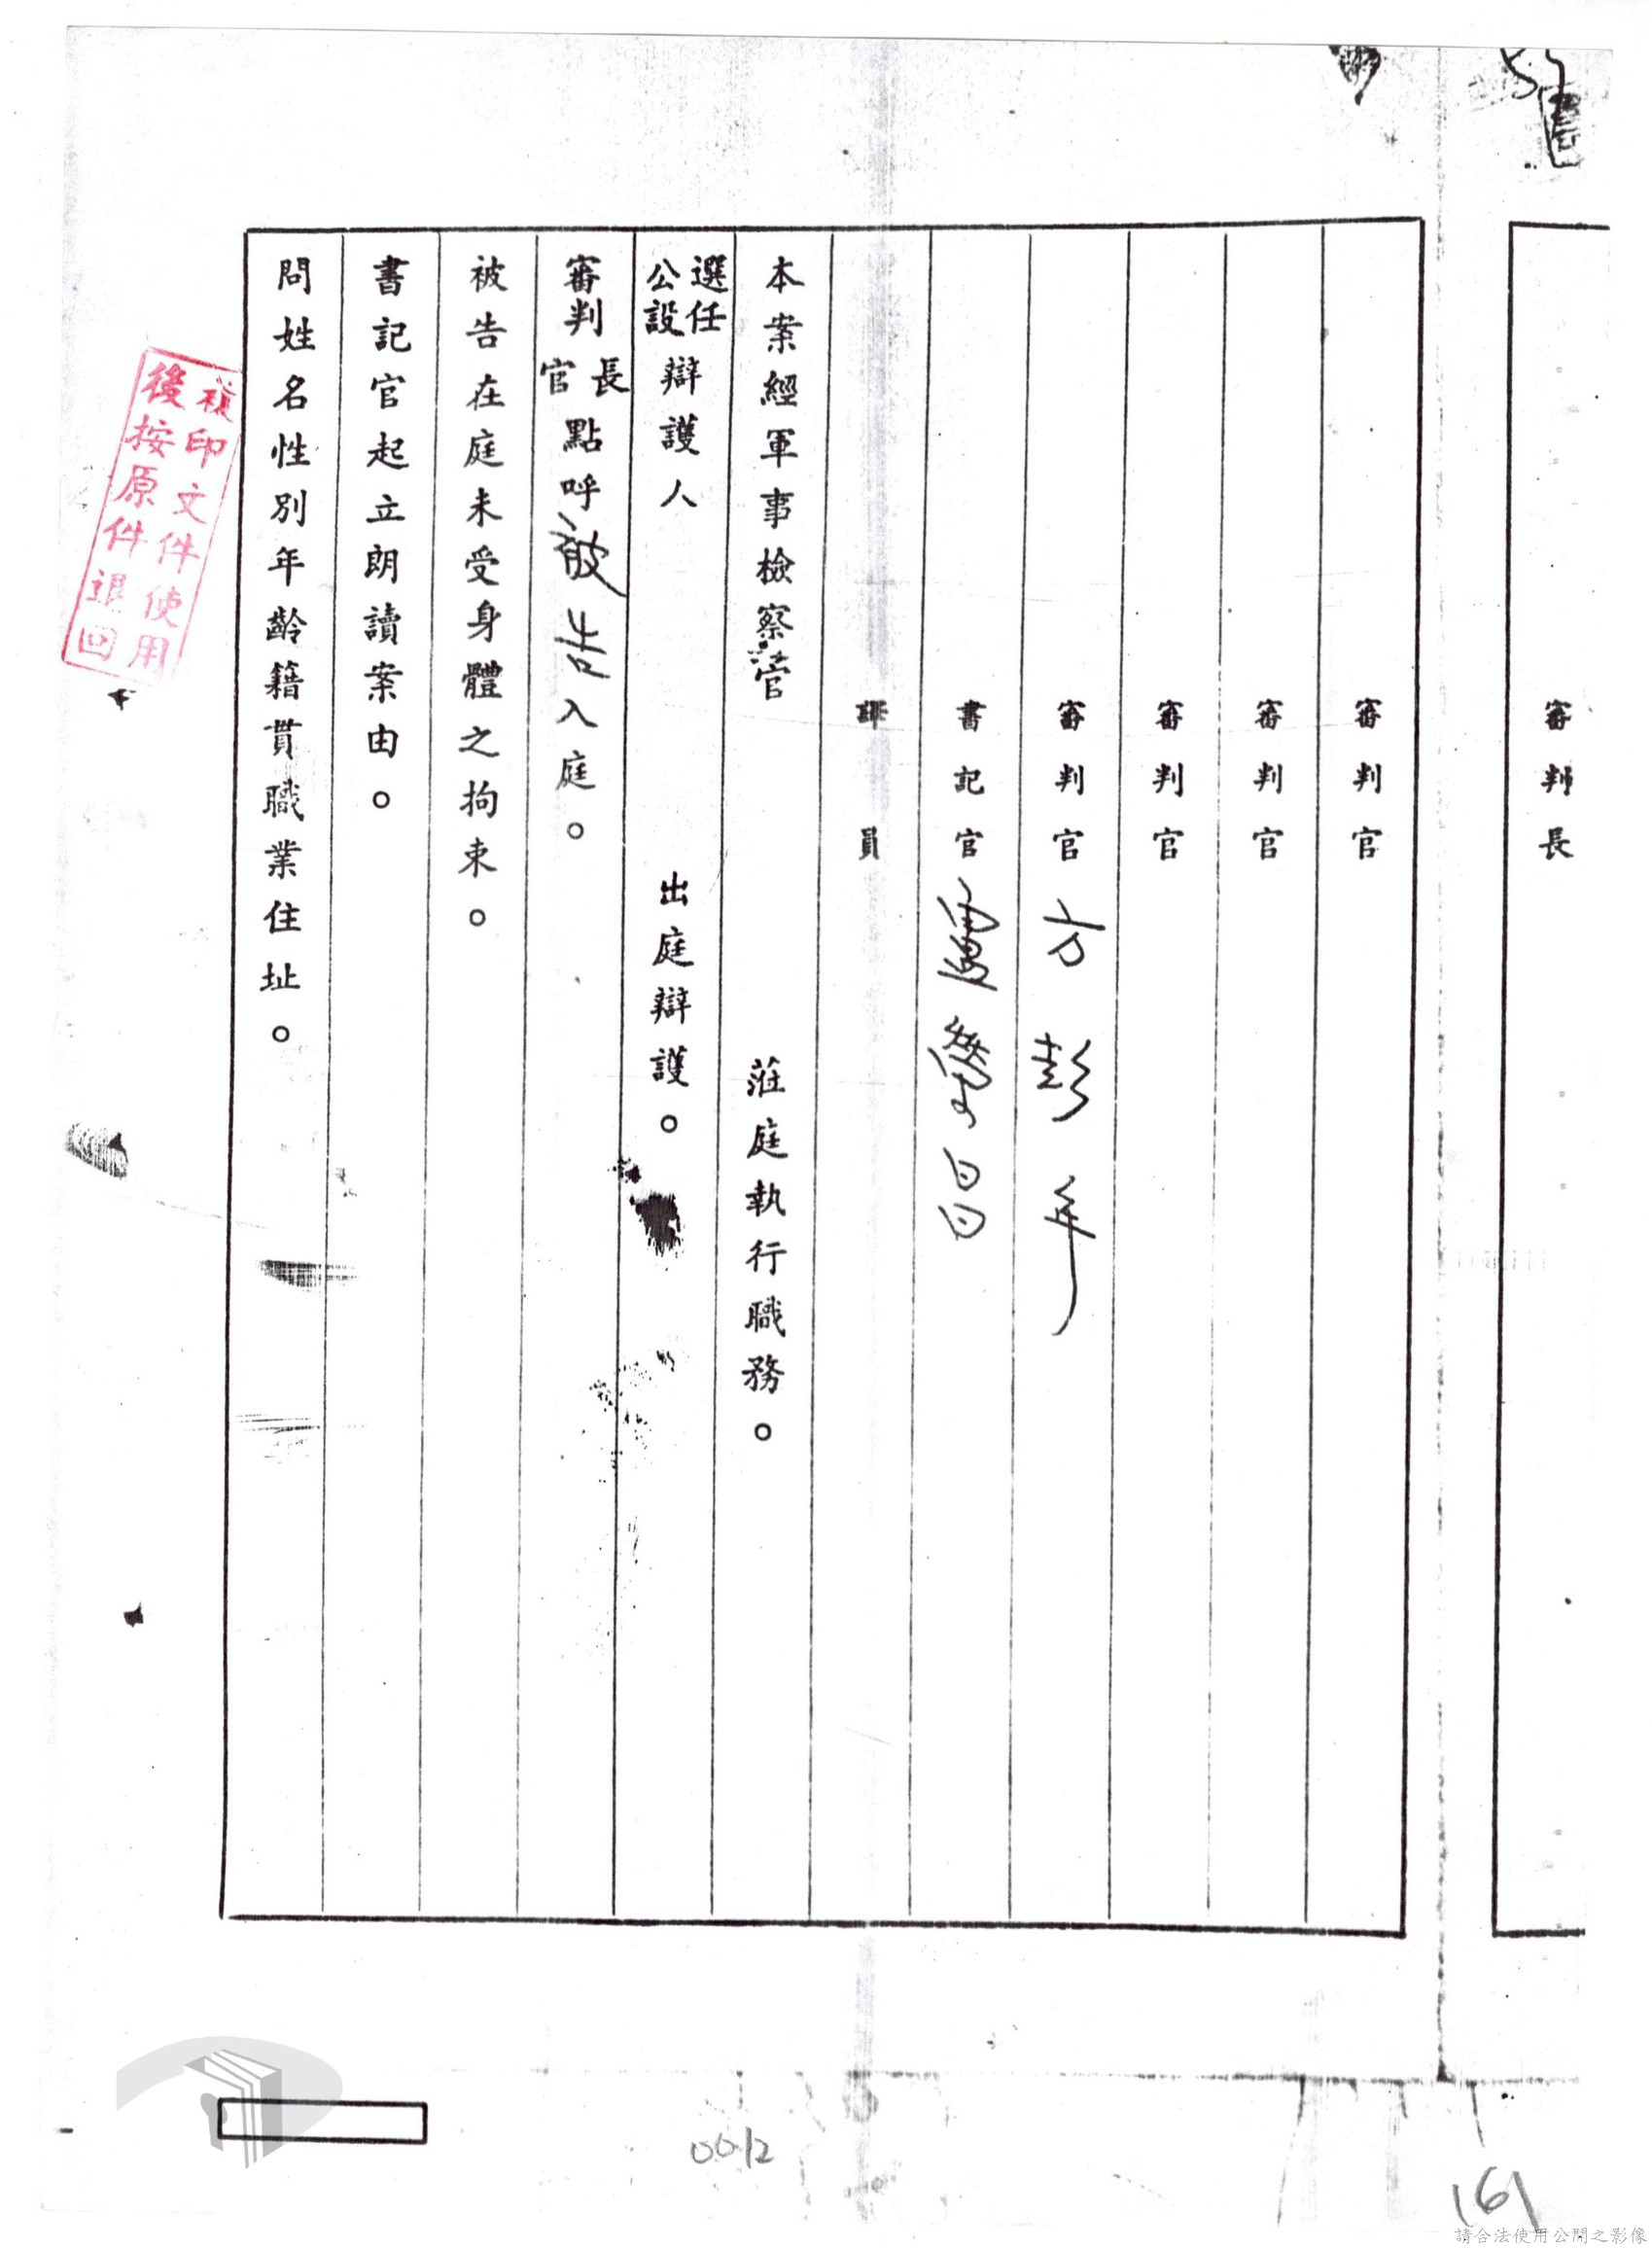 審判長
審判官
審判官
審判官
審判官 方彭年
書記官
譯員
本案經軍事檢察官 蒞庭執行職務。
選任
公設
辯護人 出庭辯護。
審判
長
官
點呼被告入庭。
被告在庭未受身體之拘束。
書記官起立朗讀案由。
問姓名性別年齡籍貫職業住址。
複印文件使用
後按原件退回
0012
161
請合法使用公開之影像